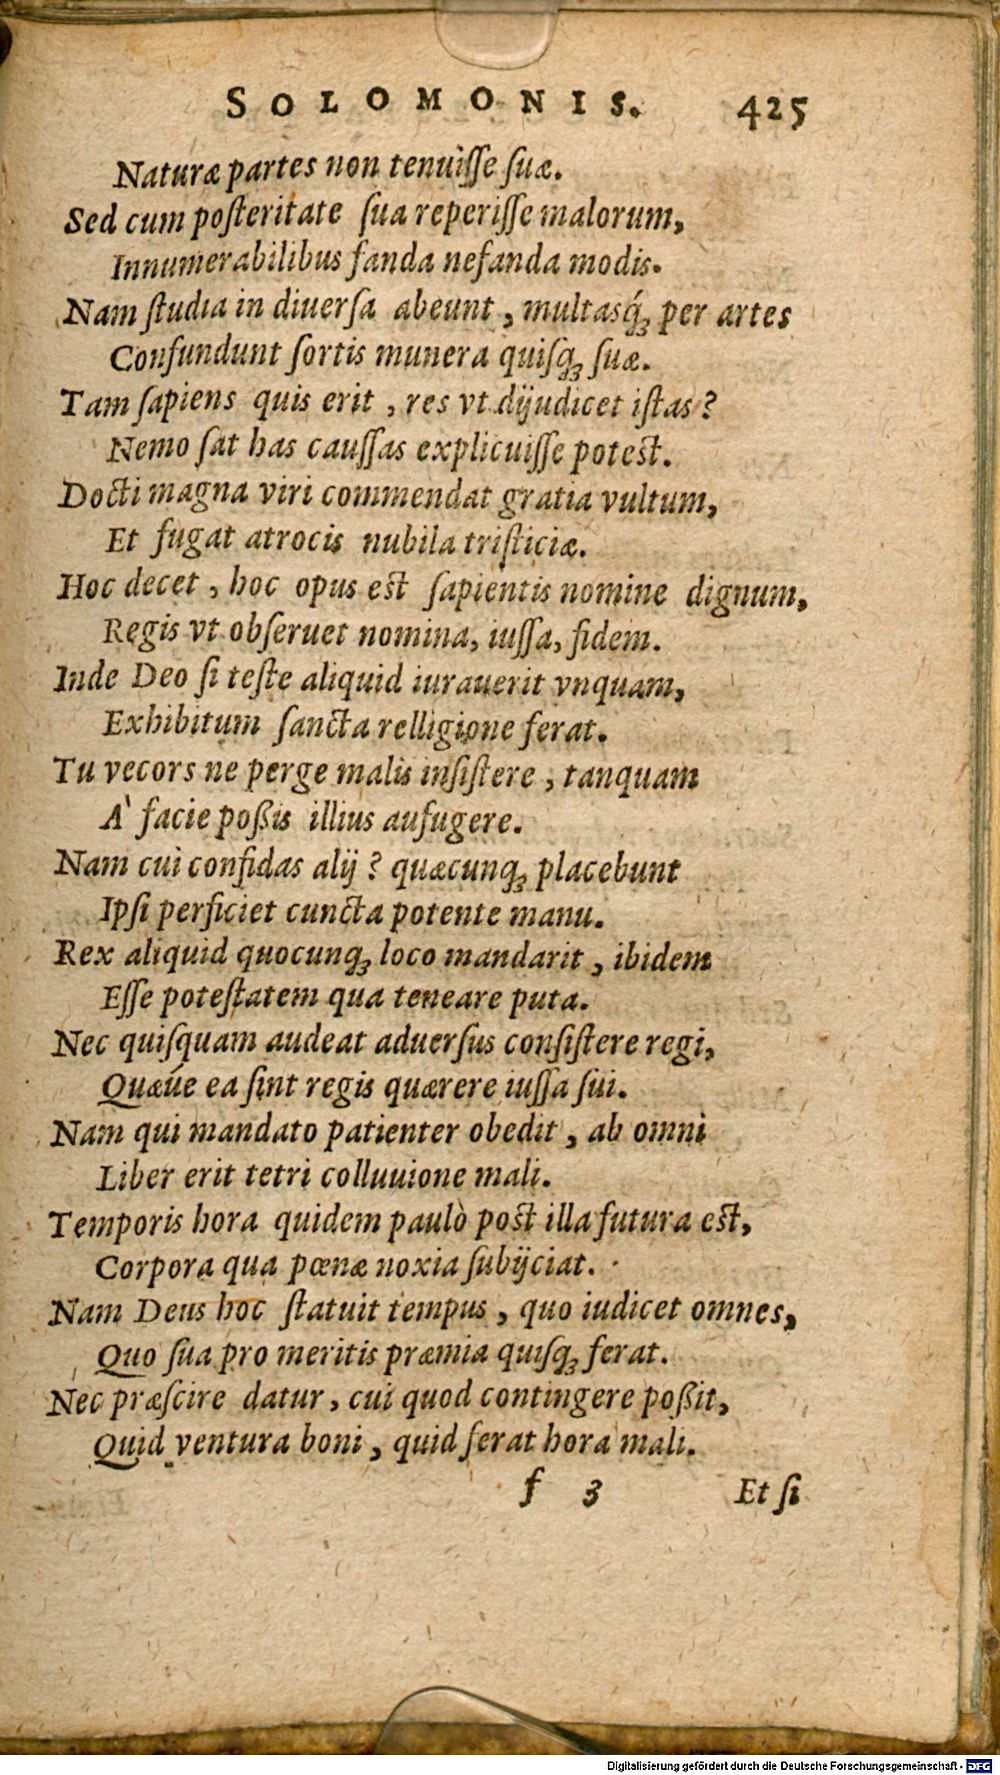 SOLOMONIS. 425
Naturæ partes non tenuìſſe ſuæ.
Sed cum poſteritate ſua reperiſſe malorum,
Innumerabilibus fanda nefanda modis.
Nam ſtudia in diuerſa abeunt, multasq́ꝫ per artes
Confundunt ſortis munera quiſqꝫ ſuæ.
Tam ſapiens quis erit, res vt dijudicet iſtas?
Nemo ſat has cauſſas explicuiſſe poteſt.
Docti magna viri commendat gratia vultum,
Et fugat atrocis nubila triſticiæ.
Hoc decet, hoc opus eſt ſapientis nomine dignum,
Regis vt obſeruet nomina, iuſſa, fidem.
Inde Deo ſi teſte aliquid iurauerit vnquam,
Exhibitum ſancta relligione ferat.
Tu vecors ne perge malis inſiſtere, tanquam
A` facie poßis illius aufugere.
Nam cui confidas alij? quæcunqꝫ placebunt
Ipſi perficiet cuncta potente manu.
Rex aliquid quocunqꝫ loco mandarit, ibidem
Eſſe poteſtatem qua teneare puta.
Nec quiſquam audeat aduerſus conſiſtere regi,
Quæúe ea ſint regis quærere iuſſa ſui.
Nam qui mandato patienter obedit, ab omni
Liber erit tetri colluuione mali.
Temporis hora quidem paulò poſt illa futura eſt,
Corpora qua pœnæ noxia ſubijciat.
Nam Deus hoc ſtatuit tempus, quo iudicet omnes,
Quo ſua pro meritis præmia quiſqꝫ ferat.
Nec præſcire datur, cui quod contingere poßit,
Quid ventura boni, quid ferat hora mali.
f 3 Et ſi
Digitalisierung gefördert durch die Deutsche Forschungsgemeinschaft - DFG